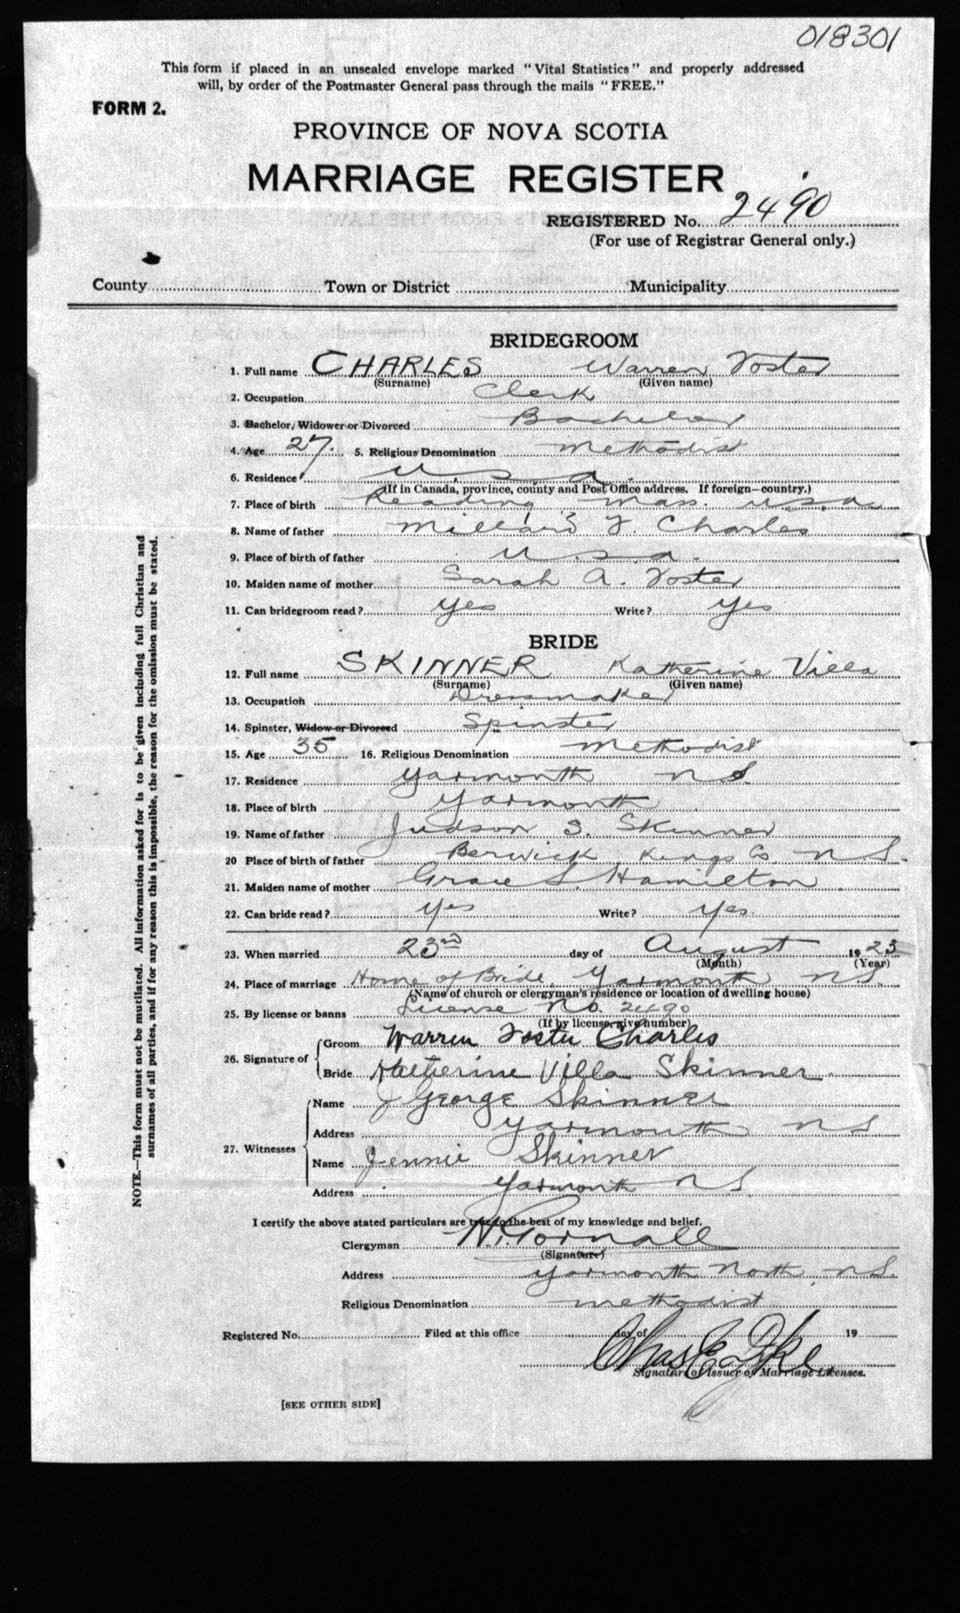 018301
This form if placed in an unsealed envelope marked "Vital Statistics" and properly addressed
will, by order of the Postmaster General pass through the mails "FREE."
FORM 2.
PROVINCE OF NOVA SCOTIA
MARRIAGE REGISTER
REGISTERED No. 2490
(For use of Registrar General only.)
County Town or District Municipality
BRIDEGROOM
1. Full name CHARLES Warren Foster
(Surname) (Given name)
2. Occupation Clerk
3. Bachelor, Widower or Divorced Bachelor
4. Age 27. 5. Religious Denomination Methodist
6. Residence U.S.A.
(If in Canada, province, county and Post Office address. If foreign—country.)
7. Place of birth Reading, Mass. U.S.A.
8. Name of father Millard F. Charles
9. Place of birth of father U.S.A.
10. Maiden name of mother Sarah A. Foster
11. Can bridegroom read? Yes Write? Yes
BRIDE
12. Full name SKINNER Katherine Villa
(Surname) (Given name)
13. Occupation Dressmaker
14. Spinster, Widow or Divorced Spinster
15. Age 35 16. Religious Denomination Methodist
17. Residence Yarmouth N.S.
18. Place of birth Yarmouth
19. Name of father Judson S. Skinner
20 Place of birth of father Berwick Kings Co. N.S.
21. Maiden name of mother Grace S. Hamilton
22. Can bride read? Yes Write? Yes.
23. When married 23rd day of August 1923
(Month) (Year)
24. Place of marriage Home of Bride, Yarmouth N.S.
(Name of church or clergyman's residence or location of dwelling house)
25. By license or banns License No. 2490
(If by license, give number)
26. Signature of Groom Warren Foster Charles
Bride Katherine Villa Skinner
27. Witnesses Name J George Skinner
Address Yarmouth N.S.
Name Jennie Skinner
Address Yarmouth N.S.
I certify the above stated particulars are true to the best of my knowledge and belief.
Clergyman
(Signature)
Address Yarmouth North, N.S.
Religious Denomination Methodist
Registered No. Filed at this office day of 19
Chas E
Signature of Issuer of Marriage Licenses.
[SEE OTHER SIDE]
NOTE.—This form must not be mutilated. All information asked for is to be given including full Christian and
surnames of all parties, and if for any reason this is impossible, the reason for the omission must be stated.